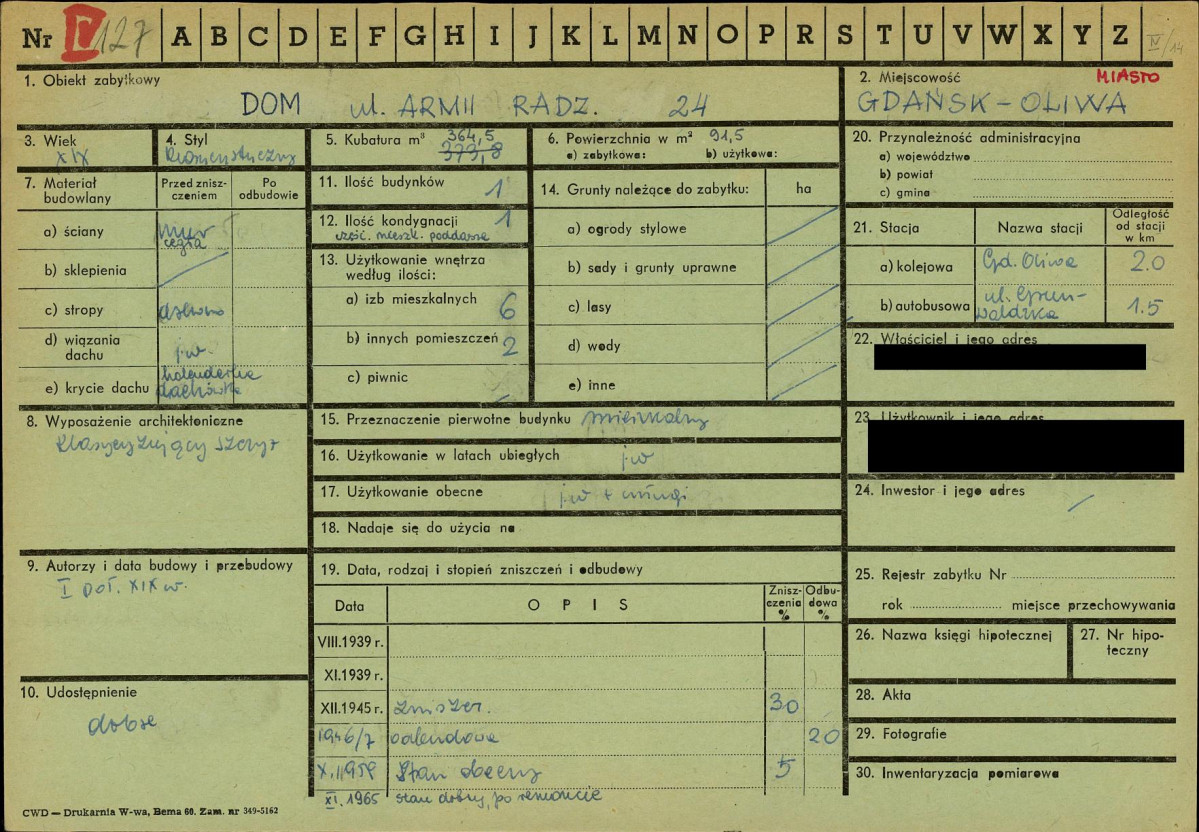 Nr 127 A B C D E F G H I J K L M N O P R S T U V W X Y Z IV/14
1. Obiekt zabytkowy
DOM ul. ARMII RADZ. 24
2. Miejscowość MIASTO
GDAŃSK-OLIWA
3. Wiek
XIX
4. Styl
5. Kubatura m³ 364,5
373,8
6. Powierzchnia w m² 91,5
a) zabytkowa: b) użytkowa:
20. Przynależność administracyjna
a) województwo
b) powiat
c) gmina
7. Materiał budowlany
Przed zniszczeniem
Po odbudowie
a) ściany mur cegła
b) sklepienia
c) stropy drewno
d) wiązania dachu jw.
e) krycie dachu holenderka dachówka
11. Ilość budynków 1
12. Ilość kondygnacji 1
część. mieszk. poddasze
13. Użytkowanie wnętrza według ilości:
a) izb mieszkalnych 6
b) innych pomieszczeń 2
c) piwnic
14. Grunty należące do zabytku: ha
a) ogrody stylowe
b) sady i grunty uprawne
c) lasy
d) wody
e) inne
21. Stacja Nazwa stacji Odległość od stacji w km
a) kolejowa Gd. Oliwa 2.0
b) autobusowa ul. Grunwaldzka 1.5
22. Właściciel i jego adres
8. Wyposażenie architektoniczne
klasycyzujący szczyt
15. Przeznaczenie pierwotne budynku mieszkalny
16. Użytkowanie w latach ubiegłych jw
17. Użytkowanie obecne jw +
18. Nadaje się do użycia na
23. Użytkownik i jego adres
24. Inwestor i jego adres
9. Autorzy i data budowy i przebudowy
I poł. XIX w.
19. Data, rodzaj i stopień zniszczeń i odbudowy
Data OPIS Zniszczenia % Odbudowa %
VIII.1939 r.
XI.1939 r.
XII.1945 r. zniszcz. 30
1946/7 odbudowa 20
X.1959 Stan obecny 5
XI.1965 stan dobry, po remoncie
10. Udostępnienie
dobre
25. Rejestr zabytku Nr
rok miejsce przechowywania
26. Nazwa księgi hipotecznej
27. Nr hipoteczny
28. Akta
29. Fotografie
30. Inwentaryzacja pomiarowa
CWD — Drukarnia W-wa, Bema 60. Zam. nr 349-5162